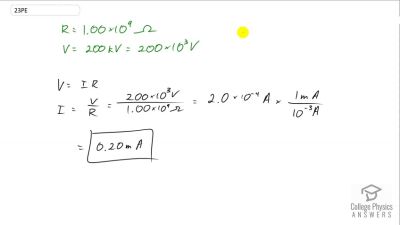 23PE
R = 1.00×10⁹ Ω
V = 200 kV = 200×10³ V
V = I R
I = V/R = 200×10³ V / 1.00×10⁹ Ω = 2.0×10⁻⁴ A × 1 mA / 10⁻³ A
= 0.20 m A
College Physics
ANSWERS